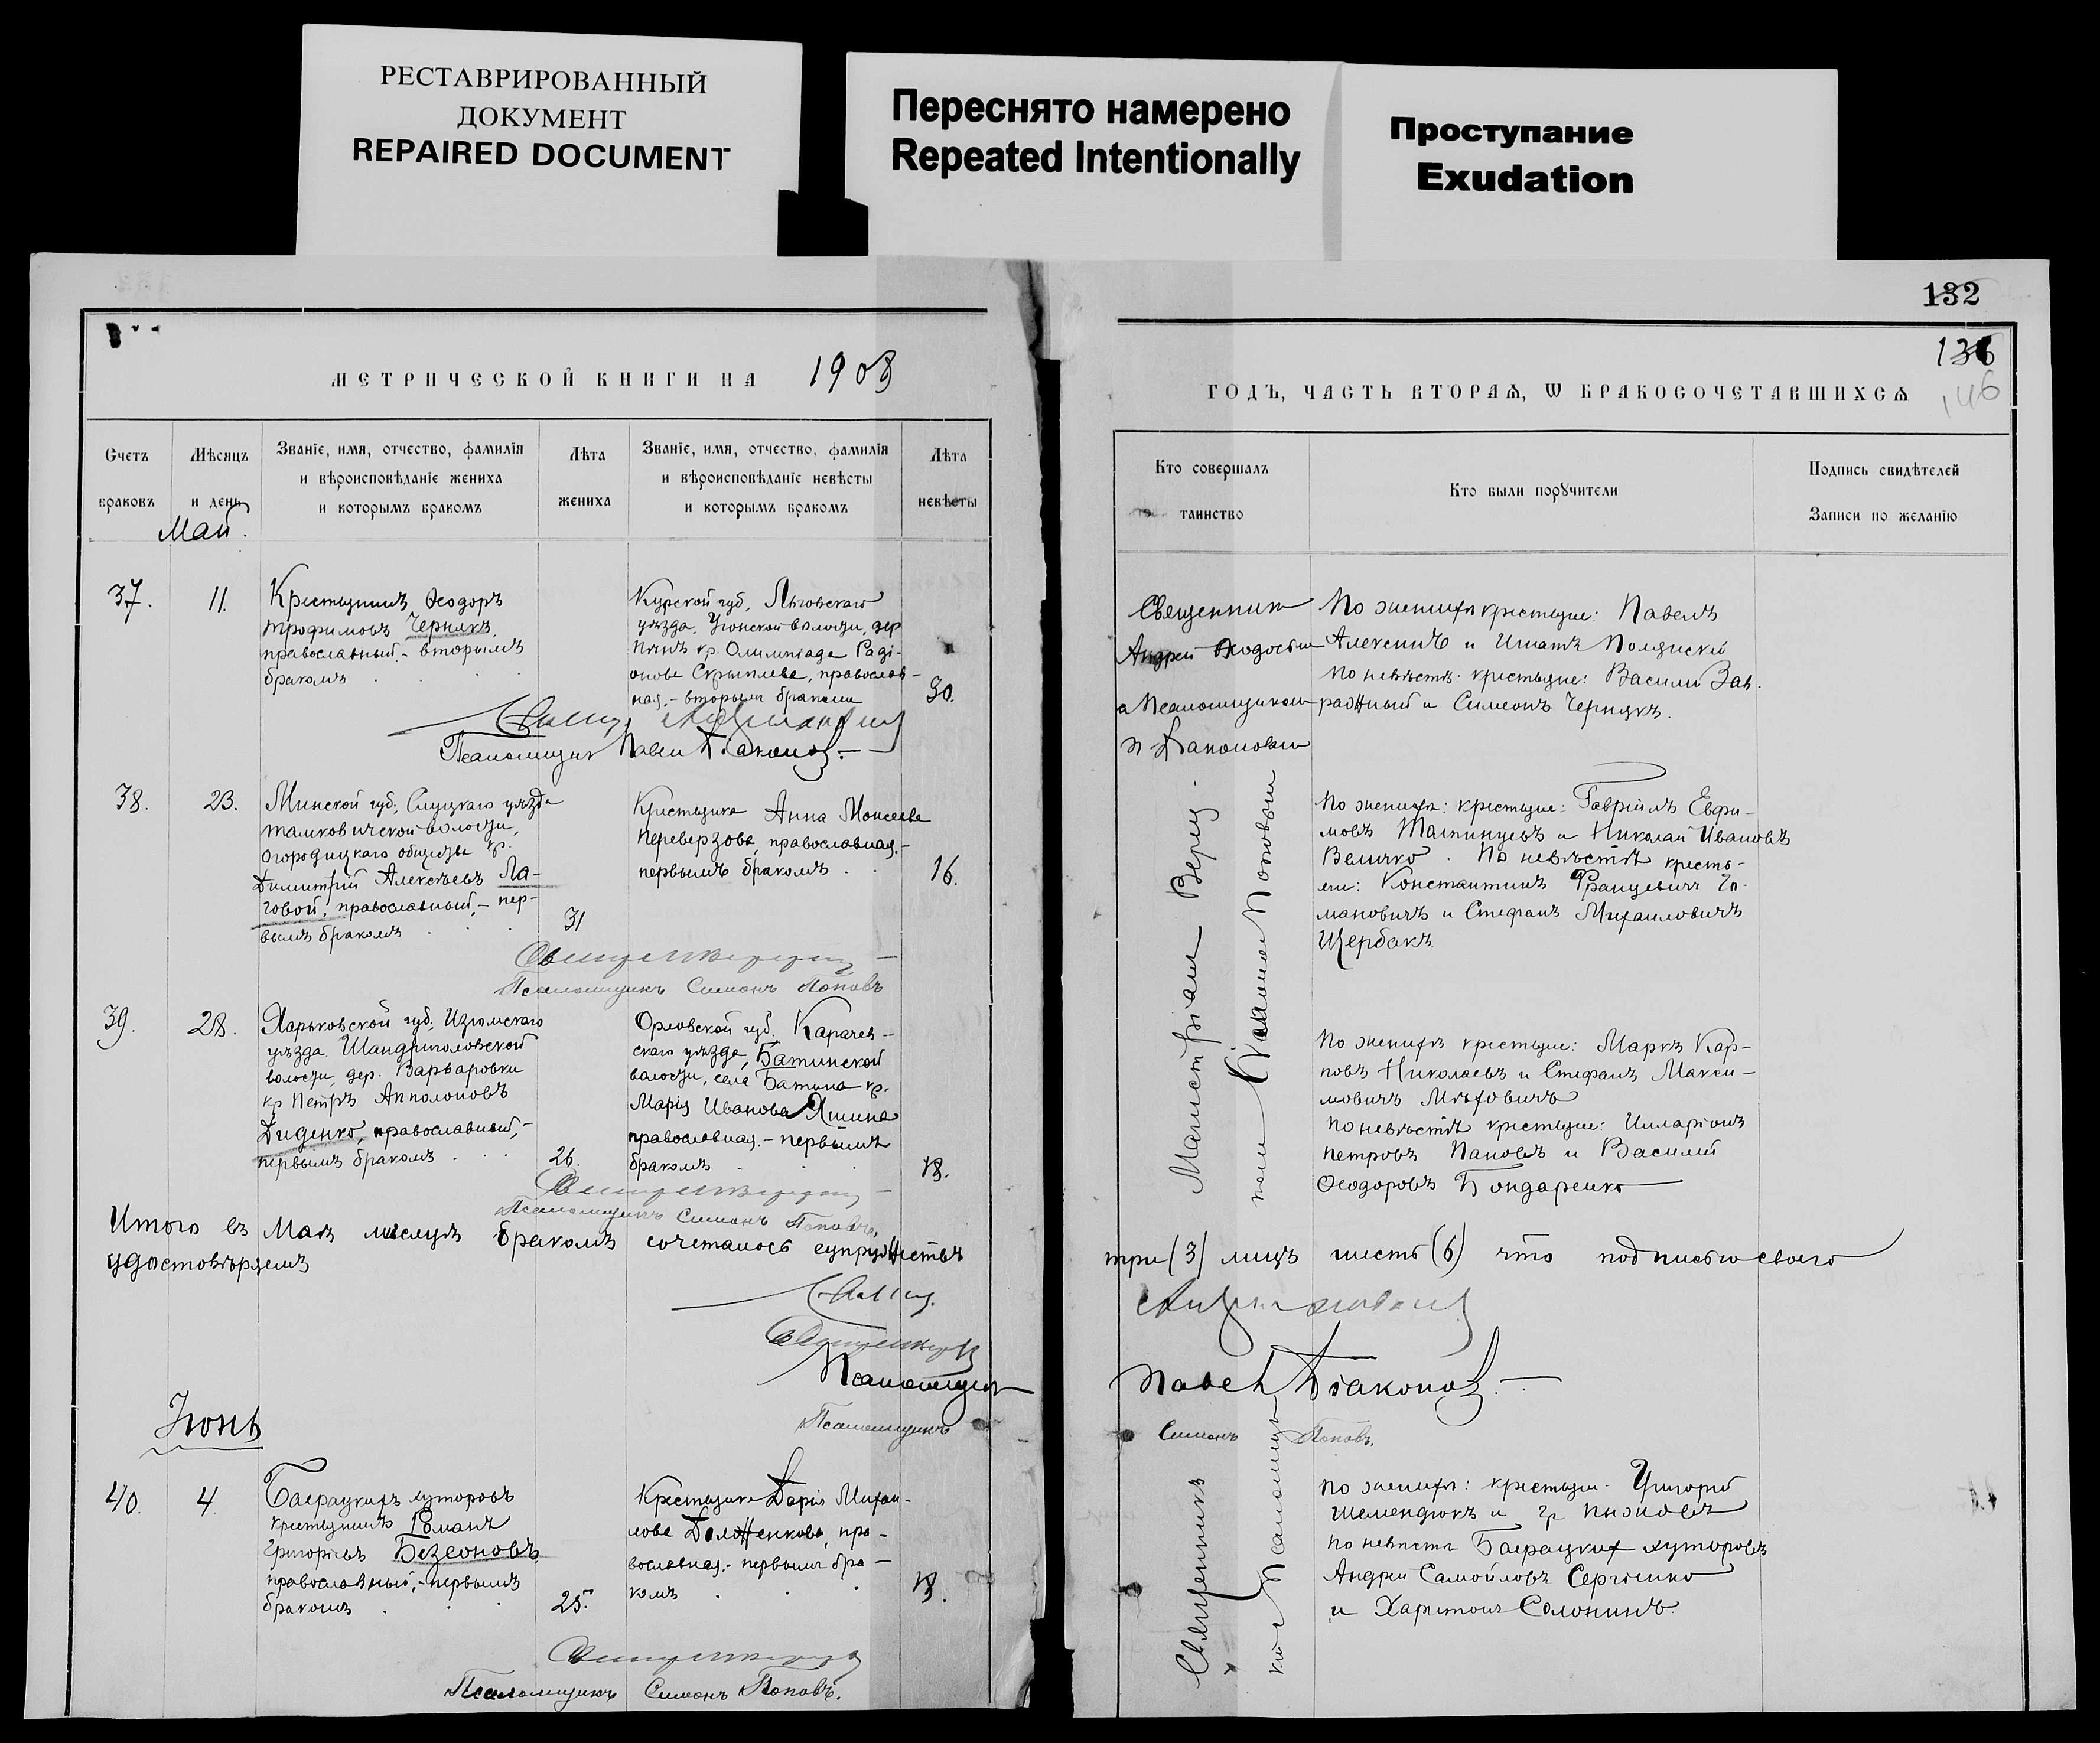 РЕСТАВРИРОВАННЫЙ
ДОКУМЕНТ
REPAIRED DOCUMENT
Переснято намерено
Repeated Intentionally
Проступание
Exudation
132
136
146
МЕТРИЧЕСКОЙ КНИГИ НА 1908
ГОДЪ, ЧАСТЬ ВТОРАѦ, Ѡ БРАКОСОЧЕТАВШИХСѦ
Счетъ браковъ
Мѣсяцъ и день
Званіе, имя, отчество, фамилія
и вѣроисповѣданіе жениха
и которымъ бракомъ
Лѣта жениха
Званіе, имя, отчество, фамилія
и вѣроисповѣданіе невѣсты
и которымъ бракомъ
Лѣта невѣсты
Кто совершалъ
таинство
Кто были порꙋчители
Подпись свидѣтелей
Записи по желанію
Май.
37.
11.
Крестьянинъ Ѳеодоръ
Трофимовъ Чернякъ,
православный,- вторымъ
бракомъ
Курской губ, Льговскаго
уѣзда, Угонской волости, дер
кр. Олимпіада Раді-
онова Скрыплева, православ-
ная.- вторымъ бракомъ
30.
Священник
Андрей
а Псаломщиком
П. Дьаконовым
По женихѣ крестьяне: Павелъ
Алексинъ и Игнатъ Полянскій
По невѣстѣ: крестьяне: Василій Зав.
ражный и Симеонъ Чернякъ.
Псаломщик Павел Дьаконов.
38.
23.
Минской губ., Слуцкаго уѣзда
волости,
Огородицкаго общества кр.
Димитрій Алексѣевъ Ла-
говой, православный,- пер-
вымъ бракомъ
31
Крестьянка Анна Моисеева
Переверзова, православная.-
первымъ бракомъ
16.
По женихѣ: крестьяне: Гавріилъ Ефи-
мовъ и Николай Ивановъ
Величко. По невѣстѣ кресть-
яне: Константинъ Францевичъ
мановичъ и Стефанъ Михаиловичъ
Щербакъ.
Псаломщикъ Симонъ Поповъ
39.
28.
Харьковской губ., Изюмскаго
уѣзда Шандриголовской
волости, дер. Варваровки
кр Петръ Апполоновъ
Диденко, православный,-
первымъ бракомъ
26.
Орловской губ. Карачев-
скаго уѣзда, Батинской
волости, села Батина кр.
Марія Иванова Яшина
православная.- первымъ
бракомъ
18.
По женихѣ крестьяне: Маркъ Кар-
повъ Николаевъ и Стефанъ Макси-
мовичъ
По невѣстѣ крестьяне: Илларіонъ
Петровъ Пановъ и Василій
Ѳеодоровъ Бондаренко
Псаломщикъ Симонъ Поповъ.
Итого въ Маѣ мѣсяцѣ бракомъ сочеталось супружествъ три (3) лицъ шесть (6) что подписью своею
удостовѣряемъ
Псаломщик Павел Дьаконов.
Псаломщикъ Симонъ Поповъ.
Іюнь
40.
4.
Баграцкихъ хуторовъ
крестьянинъ Романъ
Григорьевъ Безсоновъ,
православный,- первымъ
бракомъ
25.
Крестьянка Дарія Михаи-
лова Долженкова, пра-
вославная.- первымъ бра-
комъ
18.
Священникъ
По женихѣ: крестьяне Григорій
Шемендюкъ и
По невѣстѣ Баграцких хуторовъ
Андрей Самойловъ Сергіенко
и Харитонъ Солонинъ.
Псаломщикъ Симонъ Поповъ.